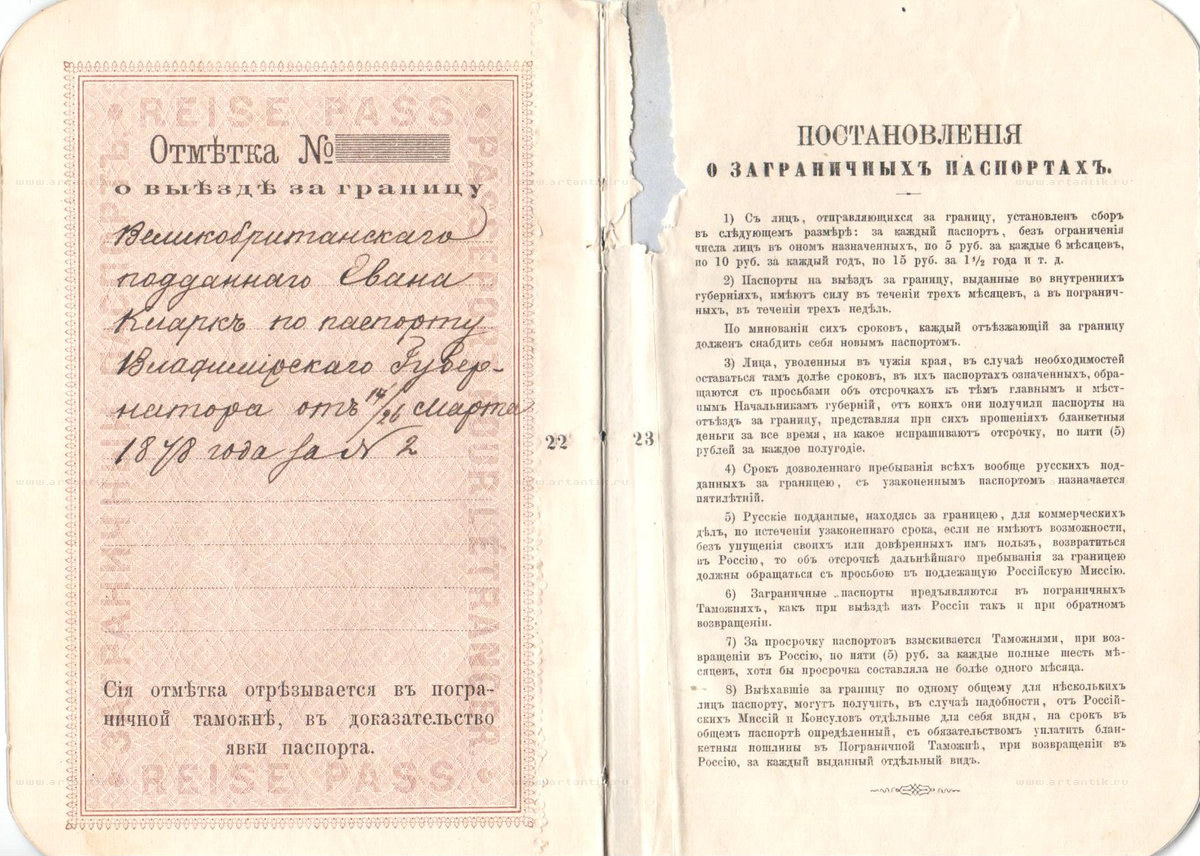 REISE PASS
ЗАГРАНИЧНЫЙ ПАСПОРТЪ
PASSEPORT POUR L'ÉTRANGER
Отмѣтка №
о выѣздѣ за границу
Великобританскаго
подданнаго Евана
Кларкъ по паспорту
Владимірскаго Губер-
натора отъ 14/26 Марта
1878 года за № 2
Сія отмѣтка отрѣзывается въ погра-
ничной таможнѣ, въ доказательство
явки паспорта.
REISE PASS
22
23
ПОСТАНОВЛЕНІЯ
О ЗАГРАНИЧНЫХЪ ПАСПОРТАХЪ.
1) Съ лицъ, отправляющихся за границу, установленъ сборъ
въ слѣдующемъ размѣрѣ: за каждый паспортъ, безъ ограниченія
числа лицъ въ ономъ назначенныхъ, по 5 руб. за каждые 6 мѣсяцевъ,
по 10 руб. за каждый годъ, по 15 руб. за 1 1/2 года и т. д.
2) Паспорты на выѣздъ за границу, выданные во внутреннихъ
губерніяхъ, имѣютъ силу въ теченіи трехъ мѣсяцевъ, а въ погранич-
ныхъ, въ теченіи трехъ недѣль.
По минованіи сихъ сроковъ, каждый отъѣзжающій за границу
долженъ снабдить себя новымъ паспортомъ.
3) Лица, уволенныя въ чужія края, въ случаѣ необходимостей
оставаться тамъ долѣе сроковъ, въ ихъ паспортахъ означенныхъ, обра-
щаются съ просьбами объ отсрочкахъ къ тѣмъ главнымъ и мѣст-
нымъ Начальникамъ губерній, отъ коихъ они получили паспорты на
отъѣздъ за границу, представляя при сихъ прошеніяхъ бланкетныя
деньги за все время, на какое испрашиваютъ отсрочку, по пяти (5)
рублей за каждое полугодіе.
4) Срокъ дозволеннаго пребыванія всѣхъ вообще русскихъ под-
данныхъ за границею, съ узаконеннымъ паспортомъ назначается
пятилѣтній.
5) Русскіе подданные, находясь за границею, для коммерческихъ
дѣлъ, по истеченіи узаконеннаго срока, если не имѣютъ возможности,
безъ упущенія своихъ или довѣренныхъ имъ пользъ, возвратиться
въ Россію, то объ отсрочкѣ дальнѣйшаго пребыванія за границею
должны обращаться съ просьбою въ подлежащую Россійскую Миссію.
6) Заграничные паспорты предъявляются въ пограничныхъ
Таможняхъ, какъ при выѣздѣ изъ Россіи такъ и при обратномъ
возвращеніи.
7) За просрочку паспортовъ взыскивается Таможнями, при воз-
вращеніи въ Россію, по пяти (5) руб. за каждые полные шесть мѣ-
сяцевъ, хотя бы просрочка составляла не болѣе одного мѣсяца.
8) Выѣхавшіе за границу по одному общему для нѣсколькихъ
лицъ паспорту, могутъ получить, въ случаѣ надобности, отъ Россій-
скихъ Миссій и Консуловъ отдѣльные для себя виды, на срокъ въ
общемъ паспортѣ опредѣленный, съ обязательствомъ уплатить блан-
кетныя пошлины въ Пограничной Таможнѣ, при возвращеніи въ
Россію, за каждый выданный отдѣльный видъ.
www.artantik.ru